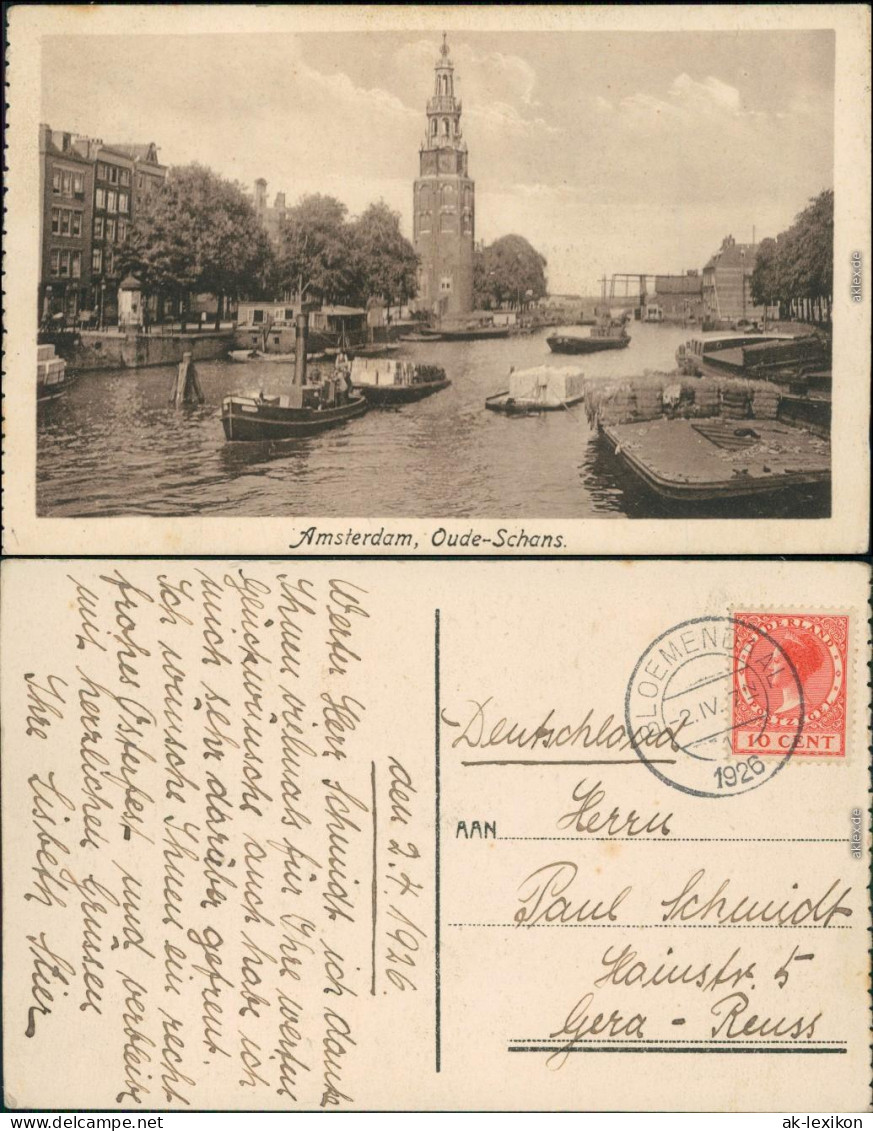 Amsterdam, Oude-Schans.
den 2.4.1926.
Werter Herr Schmidt ich danke
Ihnen vielmals für Ihre werten
Glückwünsche auch habe ich
mich sehr darüber gefreut.
Ich wünsche Ihnen ein recht
frohes Osterfest und verbleibe
mit herzlichen Grüssen
Ihre Lisbeth Stier
BLOEMENDAAL
2.IV.
1926
NEDERLAND
POSTZEGEL
10 CENT
Deutschland
AAN Herrn
Paul Schmidt
Hainstr. 5
Gera - Reuss
ak-lexikon.de
ak-lexikon.de
ak-lexikon.com